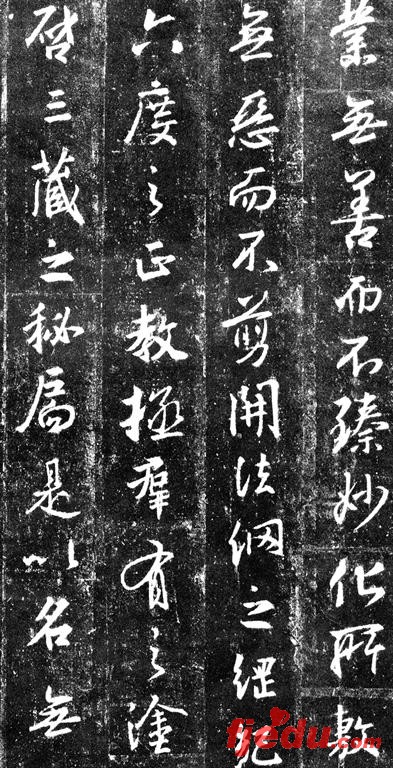 業無善而不臻妙化所敷
無惡而不剪開法網之綱紀
六度之正教拯羣有之塗
啓三藏之秘扃是以名無
fjedu.com